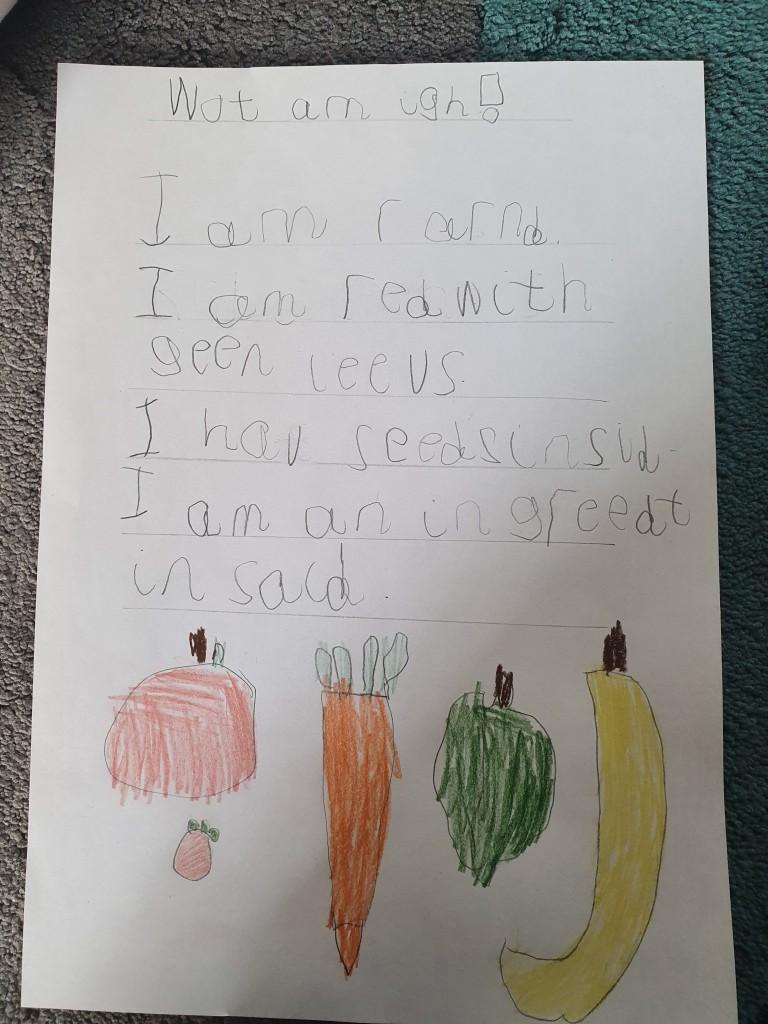 Wot am igh!
I am rarnd.
I am red with
geen leevs.
I hav seeds insid.
I am an ingreedt
in sald.